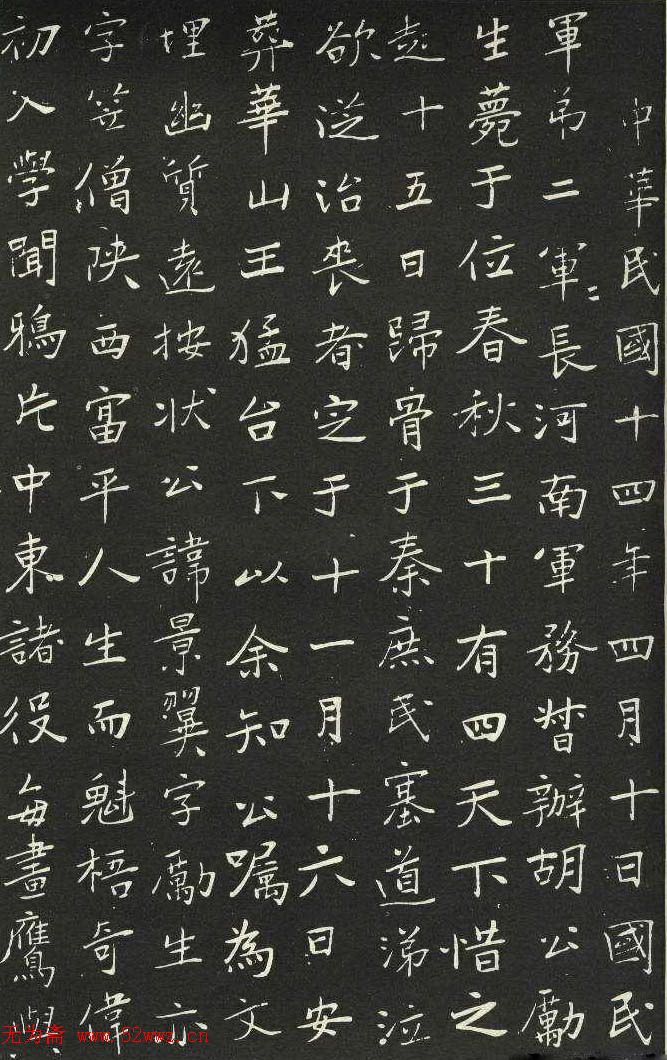 中華民國十四年四月十日國民
軍弟二軍〻長河南軍務督辦胡公勵
生薨于位春秋三十有四天下惜之
越十五日歸骨于秦庶民塞道涕泣
欲從治喪者定于十一月十六日安
葬華山王猛台下以余知公嘱為文
埋幽質遠按状公諱景翼字勵生亦
字笠僧陝西富平人生而魁梧奇偉
初入學聞鴉片中東諸役每畫鷹與
无为斋 www.52wwz.cn